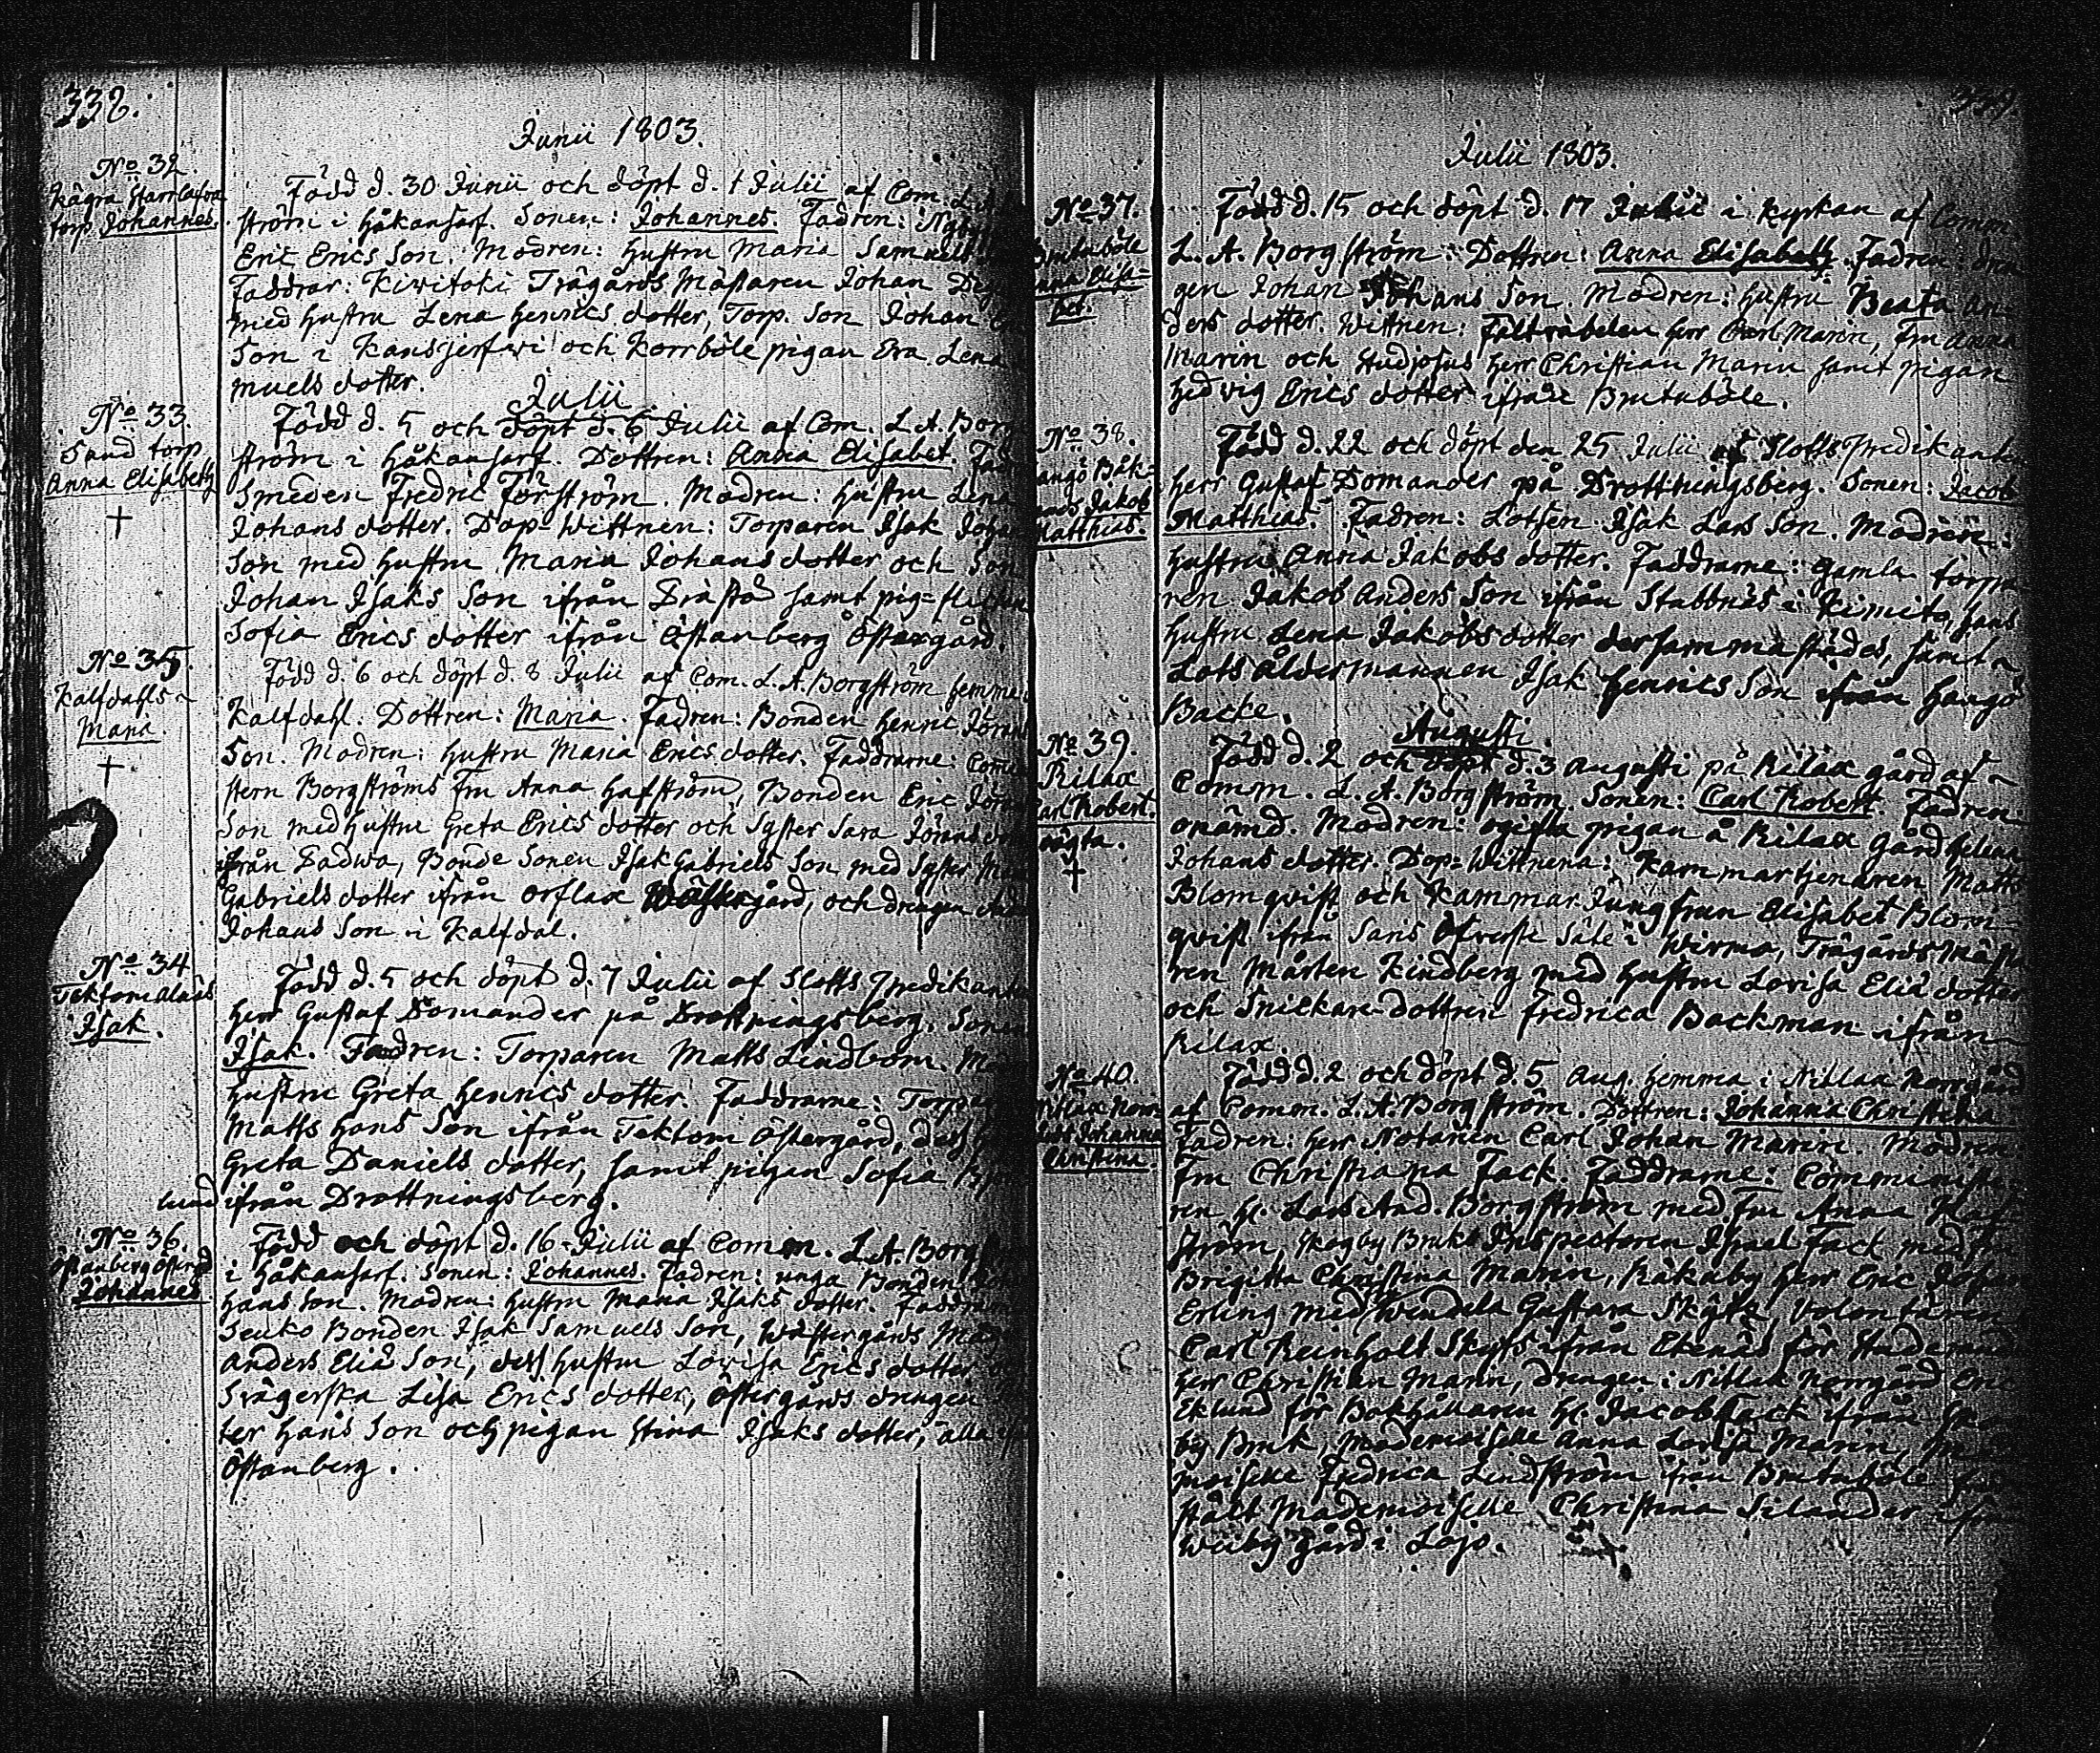 338.
Junii 1803.
No 32.
Kägra Starrlafva
torp. Johannes.
Född d. 30 Junii och döpt d. 1 Julii af Com. L. A.
ström i Håkansarf. Sonen: Johannes. Fadren:
Eric Erics Son. Modren: hustru Maria Samuels
Faddrar: Kiwitoki Trägårds Mästaren Johan
med hustru Lena Henrics dotter, Torp. Son Johan
Son i Kansjerfwi och Korrböle pigan Eva Lena
muels dotter.
Julii
No 33.
Sand torp
Anna Elisabeth
Född d. 5 och döpt d. 6 Julii af Com. L. A. Borg
ström i Håkansarf. Dottren: Anna Elisabet. Fad
Smeden Fredric Forström. Modren: hustru Lena
Johans dotter. Dop-wittnen: Torparen Isak Joha
Son med hustru Maria Johans dotter och Son
Johan Isaks Son ifrån samt pig-flickan
Sofia Erics dotter ifrån Östanberg Östergård.
No 35.
Kalfdahls
Maria.
Född d. 6 och döpt d. 8 Julii af Com. L. A. Borgström hemma i
Kalfdahl. Dottren: Maria. Fadren: Bonden Henric Jörans
Son. Modren: hustru Maria Erics dotter. Faddrarne: Comi
stern Borgströms Fru Anna Hafström, Bonden Eric Jöra
Son med hustru Greta Erics dotter och Syster Sara Jörans
ifrån Dadwa, Bonde Sonen Isak Gabriels Son med Syster
Gabriels dotter ifrån orslax Wästergård, och drengen
Johans Son i Kalfdal.
No 34
Tektomalais
Isak.
Född d. 5 och döpt d. 7 Julii af Slotts Predikanten
Herr Gustaf Domander på Drottningsberg. Sonen
Isak. Fadren: Torparen Matts Lindbom. Mo
hustru Greta Henrics dotter. Faddrarne: Torpar
Matts Hans Son ifrån Tektom Östergård, dess
Greta Daniels dotter, samt pigan Sofia
lund ifrån Drottningsberg.
No 36.
Östanberg Östergd
Johannes
Född och döpt d. 16 Julii af Comm. L. A. Borgström
i Håkansarf. Sonen: Johannes. Fadren: unga Bonden
Hans Son. Modren: hustru Maria Isaks dotter. Faddrarne
Seuko Bonden Isak Samuels Son, Wästergårds Måg
Anders Eliä Son, dess hustru Lovisa Erics dotter
Svägerska Lisa Erics dotter, Östergårds drengen
ter Hans Son och pigan Stina Isaks dotter, alla
Östanberg.
339.
Julii 1803.
No 37.
Brutuböle
Anna Elisa-
bet.
Född d. 15 och döpt d. 17 Julii i Kyrkan af Comm
L. A. Borgström. Dottren: Anna Elisabeth. Fadren: dren
gen Johan Johans Son. Modren: hustru Beata An
ders dotter. Wittnen: herr Carl Marin, Fru Anna
Marin och Studiosus Herr Christian Marin samt pigan
Hedvig Erics dotter ifrån Brutuböle.
No 38.
Hangö Båk-
Jakob
Matthias.
Född d. 22 och döpt den 25 Julii af Slotts Predikanten
Herr Gustaf Domander på Drottningsberg. Sonen: Jacob
Matthias. Fadren: Lotsen Isak Lars Son. Modren:
hustru Anna Jakobs dotter. Faddrarne: Gamla torpa
ren Jakob Anders Son ifrån Stabbnäs i Kimito, hans
hustru Lena Jakobs dotter dersammastädes, samt
Lots åldermannen Isak Henrics Son ifrån Hangö
Backe.
Augusti.
No 39.
Rilax
Carl Robert.
oägta.
Född d. 2 och döpt d. 3 Augusti på Rilax gård af
Comm. L. A. Borgström. Sonen: Carl Robert. Fadren
onämd. Modren: ogifta pigan å Rilax gård Helena
Johans dotter. Dop-Wittnena: Kammartjenaren Matts
Blomqvist och Kammar Jungfrun Elisabet Blom-
qvist ifrån Saris öfverste Säte i Wirmo, Trägårdsmästa
ren Mårten Kindberg med hustru Lovisa Eliä dotter
och Snickare-dottren Fredrica Backman ifrån
Rilax.
No 40.
Nitlax Norr
Johanna
Christina.
Född d. 2 och döpt d. 5 Aug. hemma i Nitlax Norrgård
af Comm. L. A. Borgström. Dottren: Johanna Christina
Fadren: Herr Notarien Carl Johan Marin. Modren
Fru Christiana Fack. Faddrarne: Comministe
ren H. Lars And. Borgström med Fru Anna Haf
ström, Skogby Bruks Inspectoren Israel Fack med Fru
Brigitta Christina Marin, Råkaby Herr Eric Johan
Erling med Wendela Gustava Skytt, Volontären
Carl Reinholt Skytt ifrån Ekenäs för Studeranden
Herr Christian Marin, drengen i Nitlax Norrgård Eric
Eklund för Bokhållaren H. Jacob Fack ifrån Skog
by Bruk, Mademoiselle Anna Lovisa Marin, Made
moiselle Fredrica Lindström ifrån Brutuböle
stält Mademoiselle Christina Selander ifrån
Wiiby gård i Lojo.